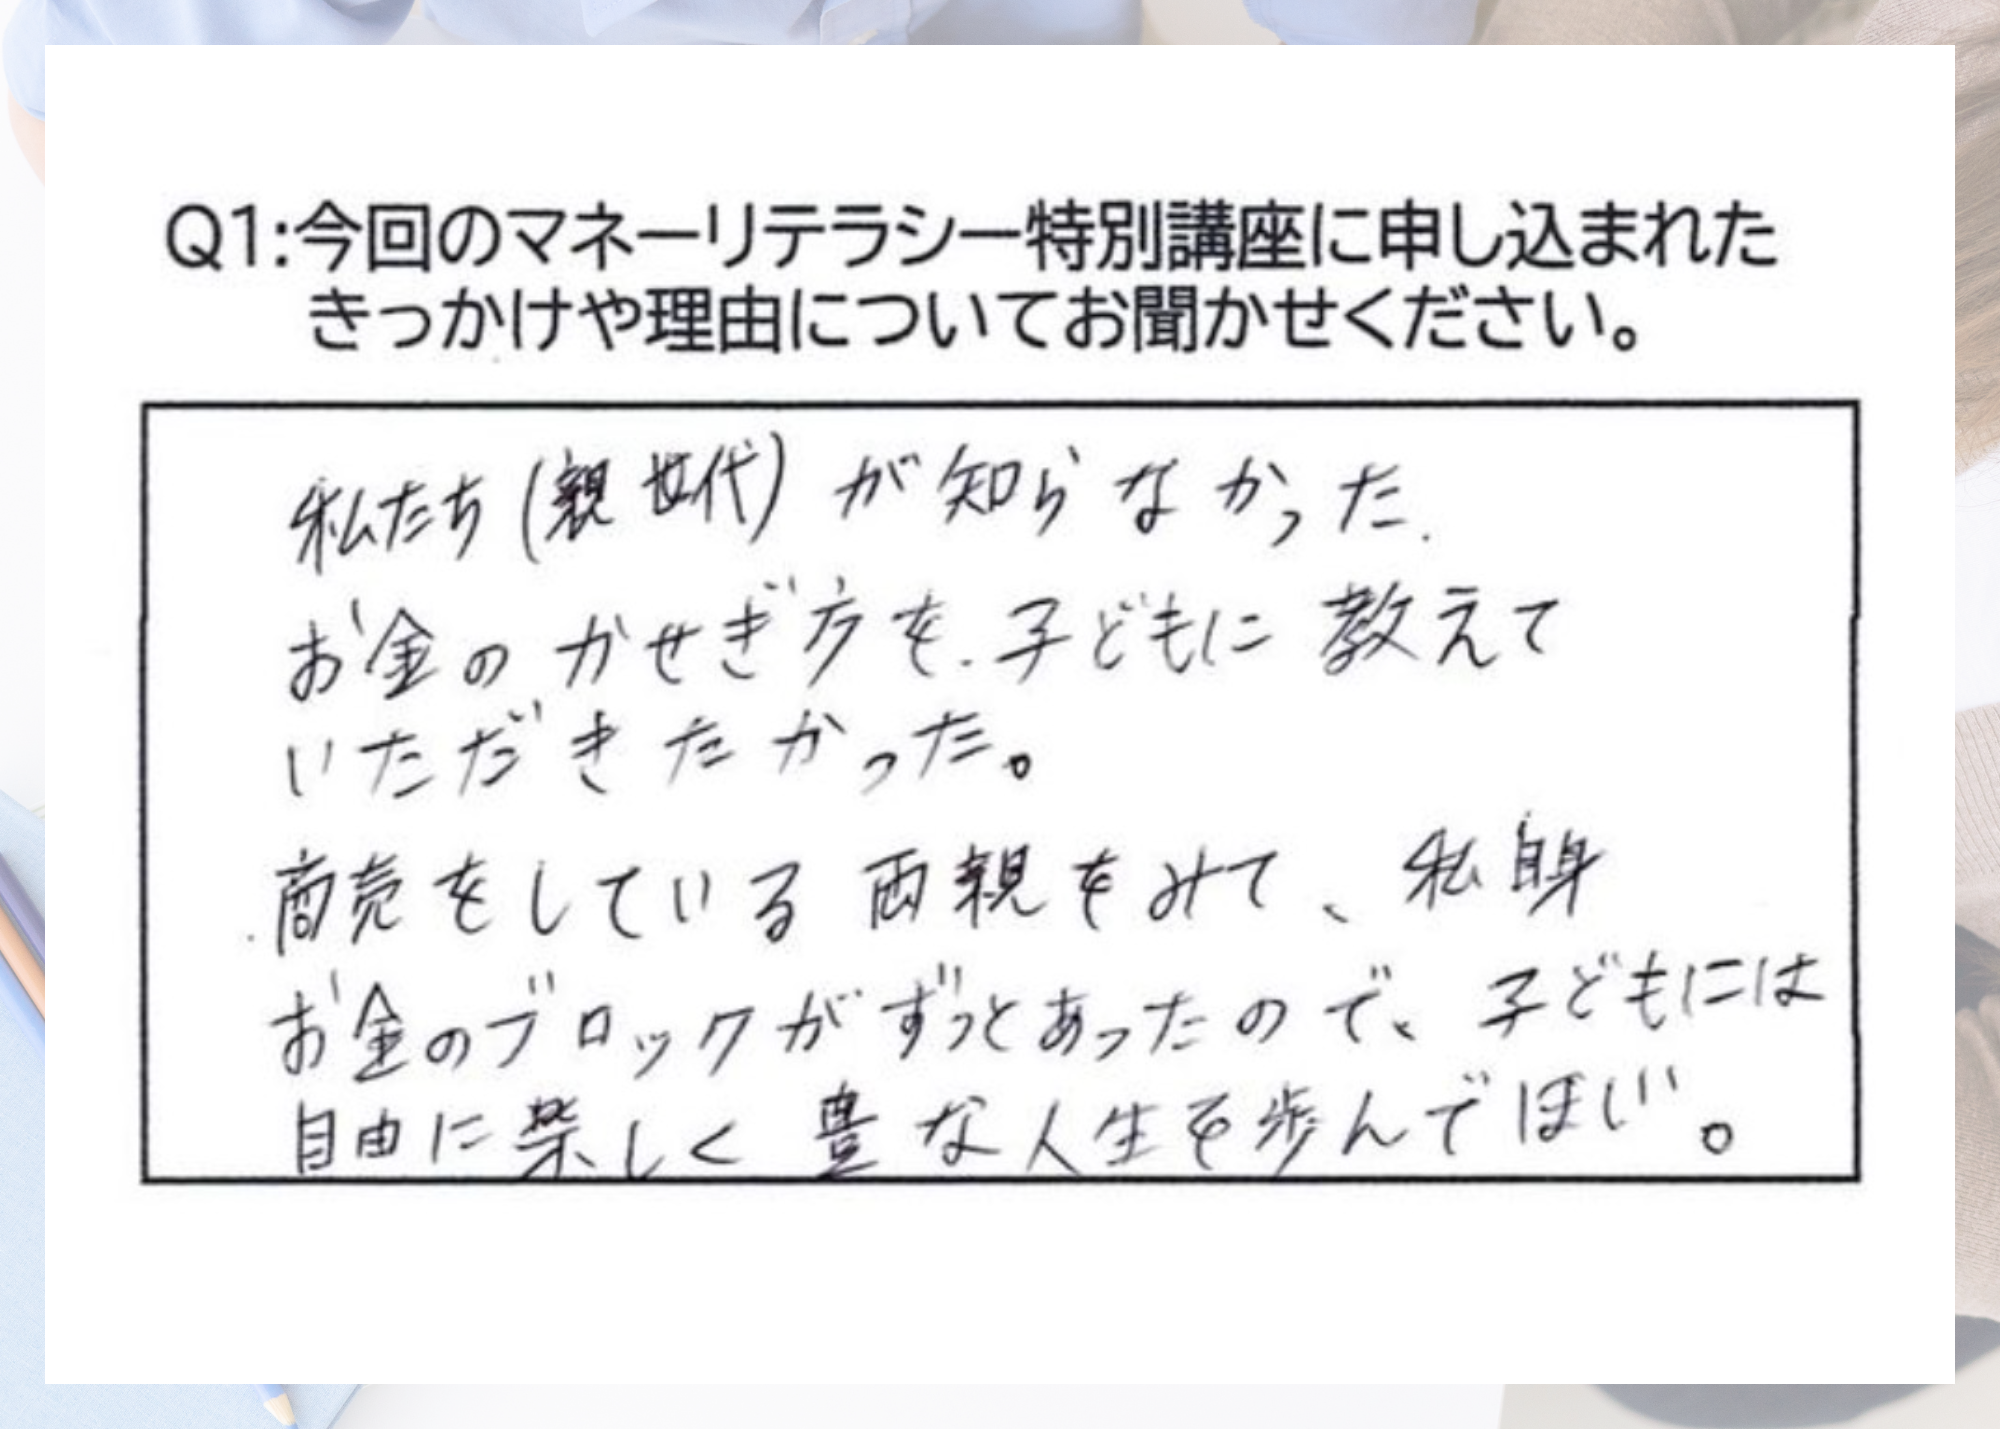 Q1:今回のマネーリテラシー特別講座に申し込まれた
きっかけや理由についてお聞かせください。
私たち(親世代)が知らなかった
お金のかせぎ方を、子どもに教えて
いただきたかった。
商売をしている両親をみて、私自身
お金のブロックがずっとあったので、子どもには
自由に楽しく豊な人生を歩んでほしい。